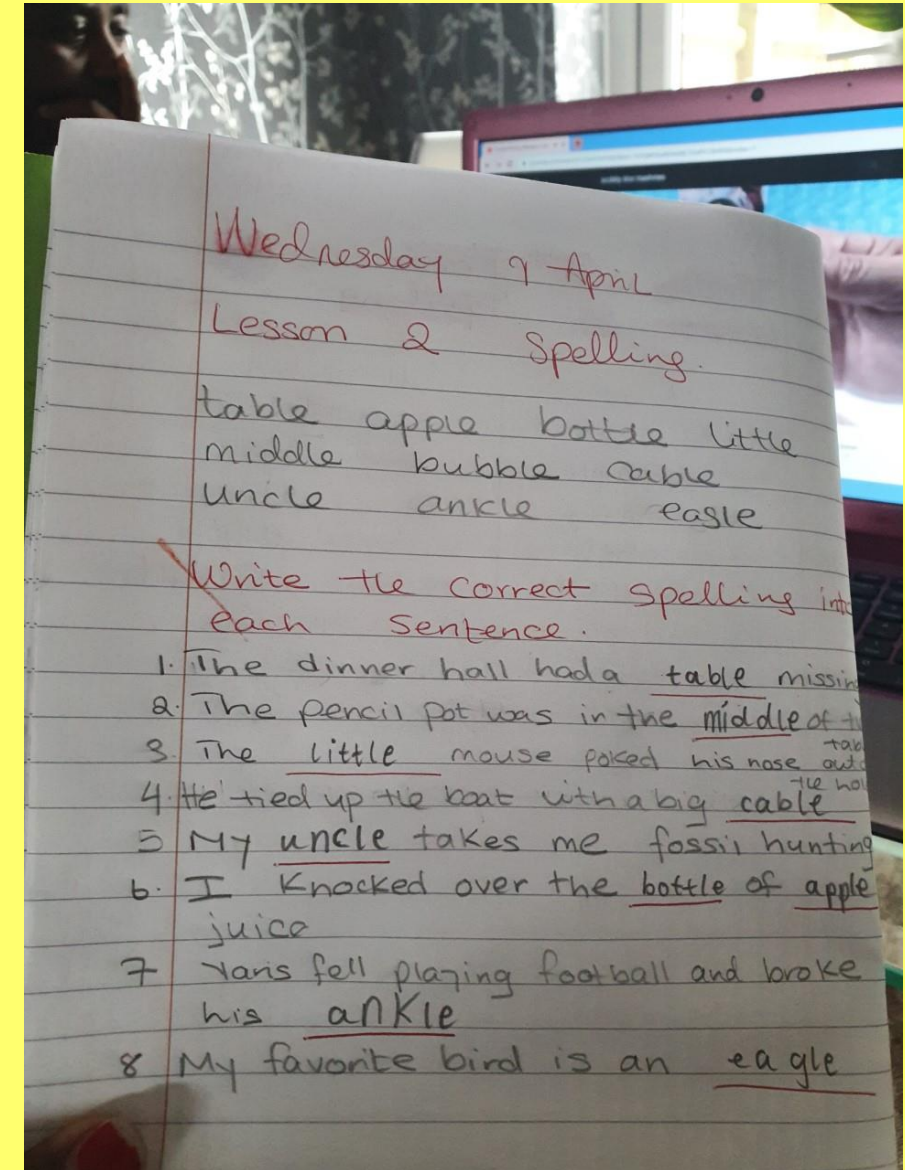 Wednesday 9 April
Lesson 2 Spelling.
table apple bottle little
middle bubble cable
uncle ankle eagle
Write the correct spelling into
each sentence.
1. The dinner hall had a table missing
2. The pencil pot was in the middle of
3. The little mouse poked his nose out
4. He tied up the boat with a big cable
5 My uncle takes me fossil hunting
6. I Knocked over the bottle of apple
juice
7 Yaris fell playing football and broke
his ankle
8 My favorite bird is an eagle